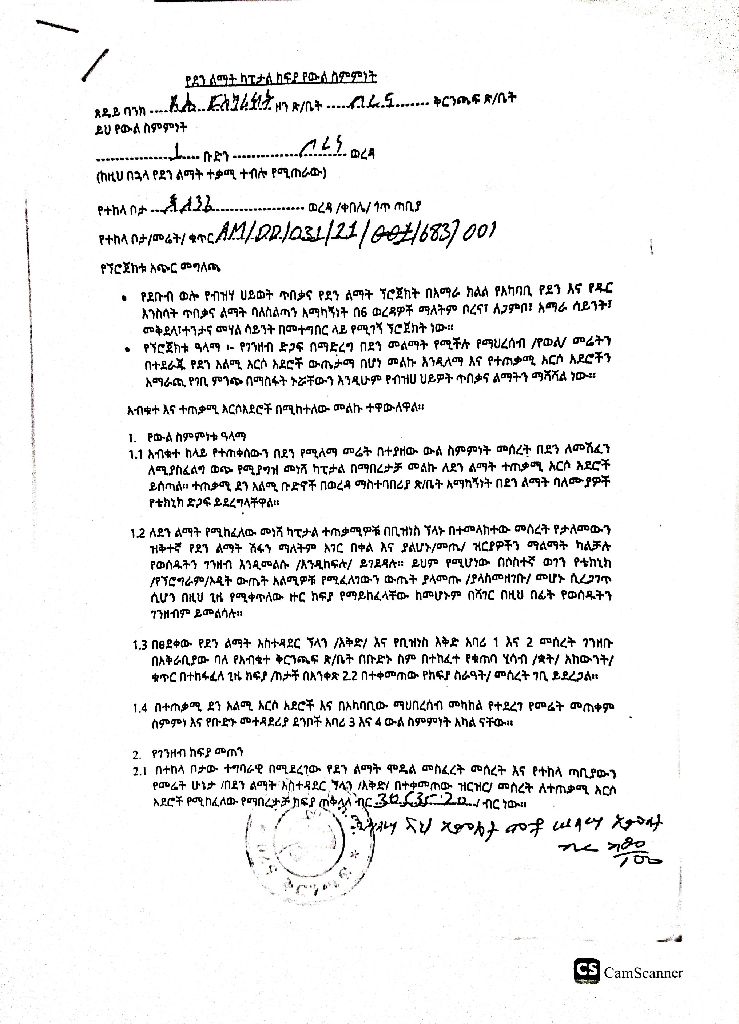 የደን ልማት ካፒታል ክፍያ የውል ስምምነት
ጸዴይ ባንክ ዞን ጽ/ቤት ቦረና ቅርንጫፍ ጽ/ቤት
ይህ የውል ስምምነት
1 ቡድን ቦረና ወረዳ
(ከዚህ በኋላ የደን ልማት ተቃሚ ተብሎ የሚጠራው)
የተከላ ቦታ ወረዳ /ቀበሌ/ ጎጥ ጣቢያ
የተከላ ቦታ/መሬት/ ቁጥር AM/DD/031/21/001/683/001
የፕሮጀክቱ አጭር መግለጫ
• የደቡብ ወሎ የብዝሃ ህይወት ጥበቃና የደን ልማት ፕሮጀክት በአማራ ክልል የአካባቢ የደን እና የዱር
እንስሳት ጥበቃና ልማት ባለስልጣን አማካኝነት በ6 ወረዳዎች ማለትም ቦረና፣ ለጋምቦ፣ አማራ ሳይንት፣
መቅደላ፣ተንታና መሃል ሳይንት በመተግበር ላይ የሚገኝ ፕሮጀክት ነው።
• የፕሮጀክቱ ዓላማ ፡- የገንዘብ ድጋፍ በማድረግ በደን መልማት የሚችሉ የማህረሰብ /የወል/ መሬትን
በተደራጁ የደን አልሚ አርሶ አደሮች ውጤታማ በሆነ መልኩ እንዲለማ እና የተጠቃሚ አርሶ አደሮችን
አማራጪ የገቢ ምንጭ በማስፋት ኑሯቸውን እንዲሁም የብዝሀ ህይዎት ጥበቃና ልማትን ማሻሻል ነው።
አብቁተ እና ተጠቃሚ አርሶአደሮች በሚከተለው መልኩ ተዋውለዋል።
1. የውል ስምምነቱ ዓላማ
1.1 አብቁተ ከላይ የተጠቀሰውን በደን የሚለማ መሬት በተያዘው ውል ስምምነት መሰረት በደን ለመሸፈን
ለሚያስፈልግ ወጭ የሚያግዝ መነሻ ካፒታል በማበረታቻ መልኩ ለደን ልማት ተጠቃሚ አርሶ አደሮች
ይሰጣል። ተጠቃሚ ደን አልሚ ቡድኖች በወረዳ ማስተባበሪያ ጽ/ቤት አማካኝነት በደን ልማት ባለሙያዎች
የቴክኒክ ድጋፍ ይደረግላቸዋል።
1.2 ለደን ልማት የሚከፈለው መነሻ ካፒታል ተጠቃሚዎቹ በቢዝነስ ፕላኑ በተመላከተው መሰረት የታለመውን
ዝቅተኛ የደን ልማት ሽፋን ማለትም አገር በቀል እና ያልሆኑ/መጤ/ ዝርያዎችን ማልማት ካልቻሉ
የወሰዱትን ገንዘብ እንዲመልሱ /እንዲከፍሉ/ ይገደዳሉ። ይህም የሚሆነው በሶስተኛ ወገን የቴክኒክ
/የፕሮግራም/ኦዲት ውጤት አልሚዎቹ የሚፈለገውን ውጤት ያላመጡ /ያላስመዘገቡ/ መሆኑ ሲረጋገጥ
ሲሆን በዚህ ጊዜ የሚቀጥለው ዙር ክፍያ የማይከፈላቸው ከመሆኑም በሻገር በዚህ በፊት የወሰዱትን
ገንዘብም ይመልሳሉ።
1.3 በፀደቀው የደን ልማት አስተዳደር ፕላን /እቅድ/ እና የቢዝነስ እቅድ አባሪ 1 እና 2 መሰረት ገንዘቡ
በአቅራቢያው ባለ የአብቁተ ቅርንጫፍ ጽ/ቤት በቡድኑ ስም በተከፈተ የቁጠባ ሂሳብ /ቋት/ አካውንት/
ቁጥር በተከፋፈለ ጊዜ ክፍያ /ጠታች በአንቀጽ 2.2 በተቀመጠው የክፍያ ስራዓት/ መሰረት ገቢ ይደረጋል።
1.4 በተጠቃሚ ደን አልሚ አርሶ አደሮች እና በአካባቢው ማህበረሰብ መካከል የተደረገ የመሬት መጠቀም
ስምምነ እና የቡድኑ መተዳደሪያ ደንቦች አባሪ 3 እና 4 ውል ስምምነት አካል ናቸው።
2. የገንዘብ ክፍያ መጠን
2.1 በተከላ ቦታው ተግባራዊ በሚደረገው የደን ልማት ሞዴል መስፈረት መሰረት እና የተከላ ጣቢያውን
የመሬት ሁኔታ /በደን ልማት አስተዳደር ፕላን /እቅድ/ በተቀመጠው ዝርዝር/ መሰረት ለተጠቃሚ አርሶ
አደሮች የሚከፈለው የማበረታቻ ክፍያ ጠቅላላ ብር / ብር ነው።
CS CamScanner